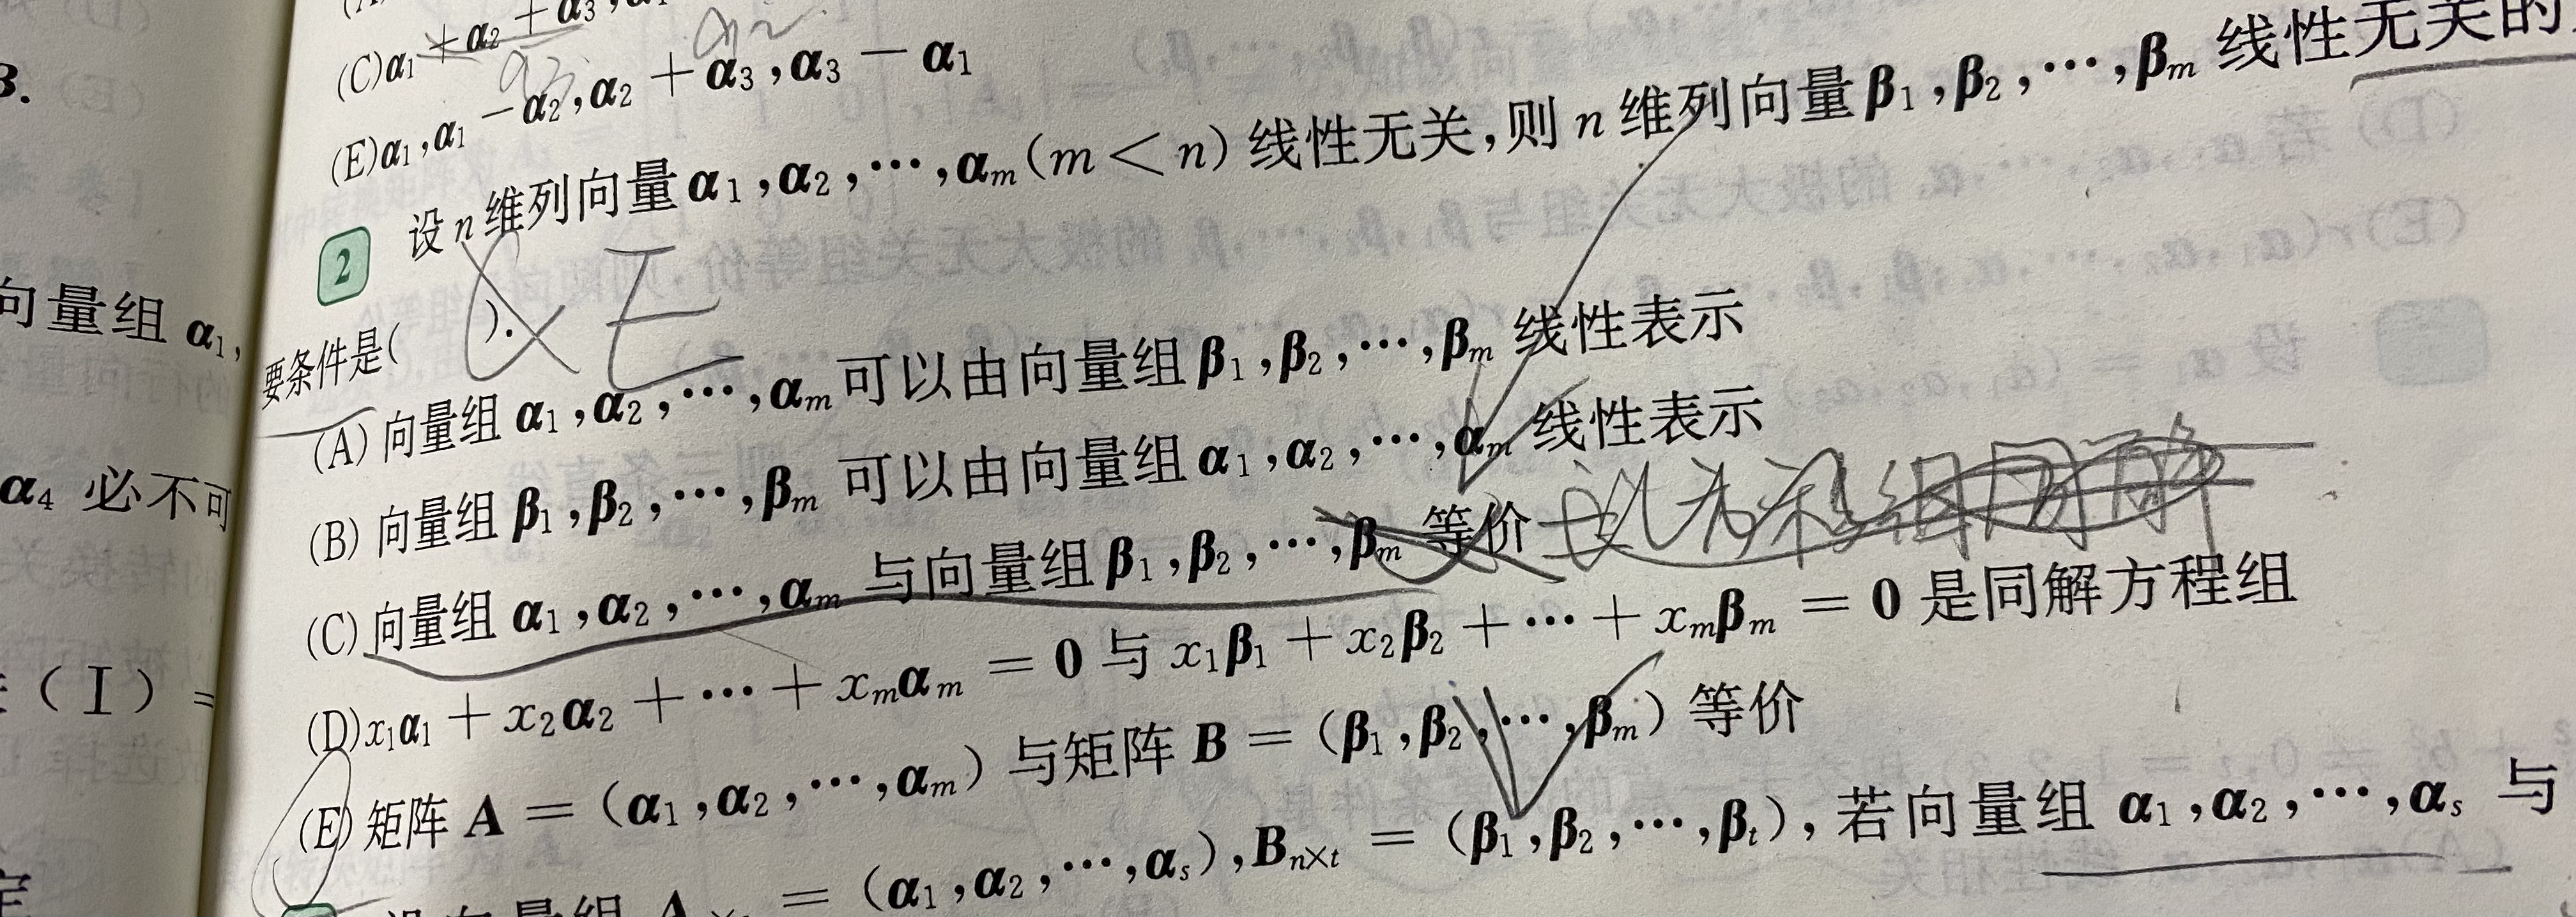 (C)α₁ + α₂ + α₃,α₁
(E)α₁,α₁ − α₂,α₂ + α₃,α₃ − α₁
α₃ α₂
2 设 n 维列向量α₁,α₂,⋯,αₘ(m < n) 线性无关,则 n 维列向量β₁,β₂,⋯,βₘ 线性无关的
要条件是( ).
E
(A) 向量组 α₁,α₂,⋯,αₘ 可以由向量组 β₁,β₂,⋯,βₘ 线性表示
(B) 向量组 β₁,β₂,⋯,βₘ 可以由向量组 α₁,α₂,⋯,αₘ 线性表示
(C) 向量组 α₁,α₂,⋯,αₘ 与向量组 β₁,β₂,⋯,βₘ 等价
(D)x₁α₁ + x₂α₂ + ⋯ + xₘαₘ = 0 与 x₁β₁ + x₂β₂ + ⋯ + xₘβₘ = 0 是同解方程组
(E) 矩阵 A = (α₁,α₂,⋯,αₘ) 与矩阵 B = (β₁,β₂,⋯,βₘ) 等价
= (α₁,α₂,⋯,αₛ),Bₙ×ₜ = (β₁,β₂,⋯,βₜ),若向量组 α₁,α₂,⋯,αₛ 与
B.
向量组 α₁,
α₄ 必不可
(Ⅰ) =